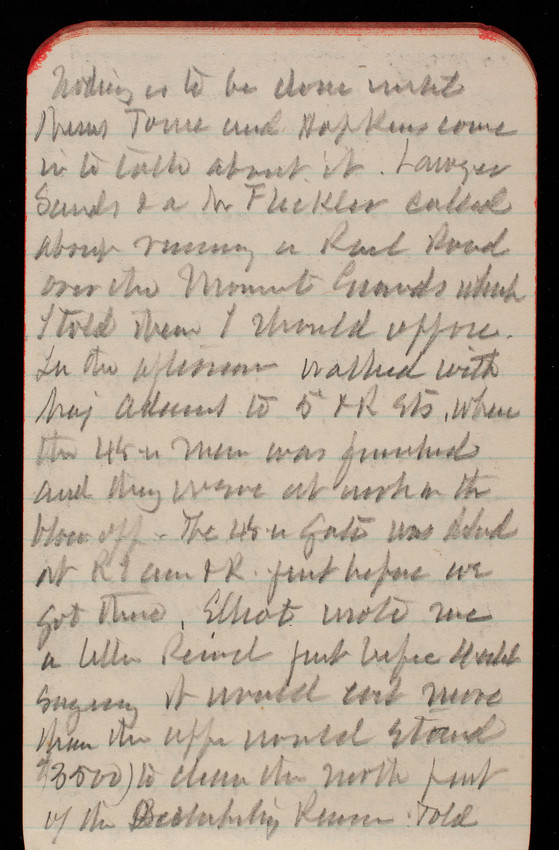 Nothing is to be done until
Messrs Towne and Hopkins come
in to talk about it. Lawyer
Sands & a Mr Fleckler called
about running a Rail Road
over the Monument Grounds which
I told them I should oppose.
In the afternoon walked with
Maj Adams to 5 & R Sts, where
the 48 in Main was finished
and they were at work on the
blow off - The 48 in Gate was
at R I ave & R. just before we
got there. Elliot wrote me
a letter Recvd just before
saying it would cost more
than the appn would stand
$3500) to clean the north part
of the Distributing Reservr. Told